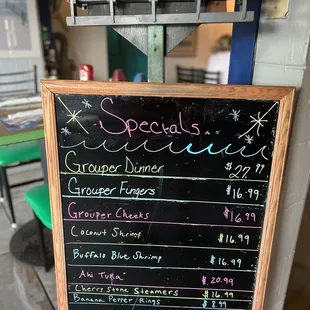 Specials..
Grouper Dinner $27.99
Grouper Fingers $16.99
Grouper Cheeks $16.99
Coconut Shrimp $16.99
Buffalo Blue Shrimp $16.99
Ahi Tuna $20.99
Cherry Stone Steamers $16.99
Banana Pepper Rings $8.99